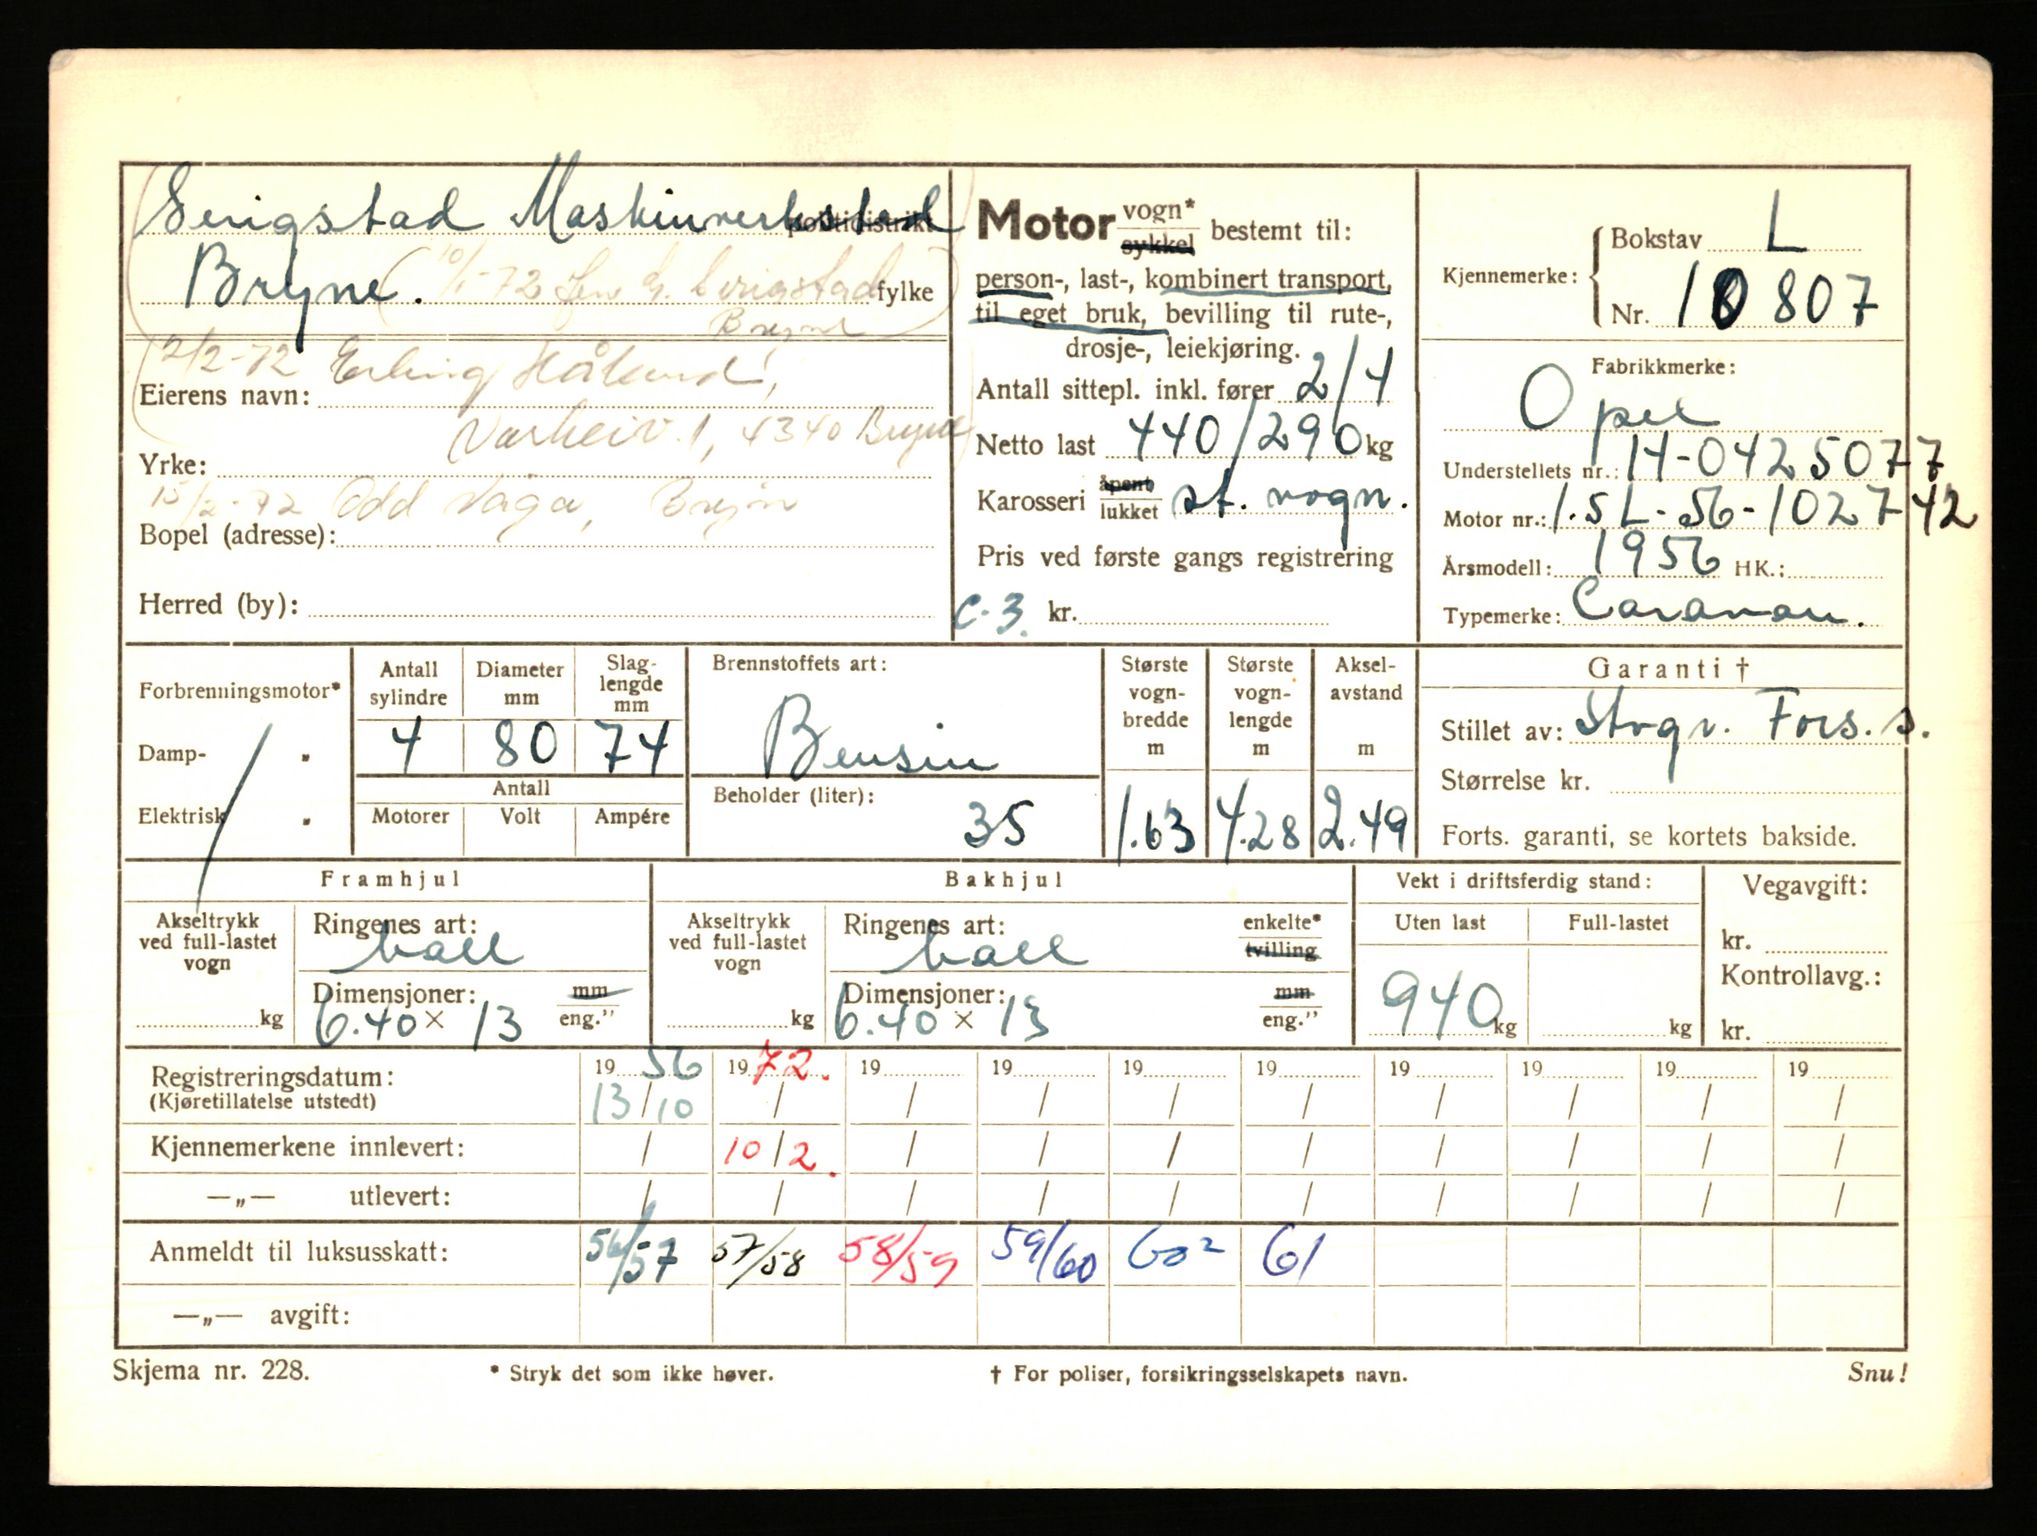 Serigstad Maskinverksted politidistrikt
Bryne. (10/1-72 Serigstad fylke
Bryne
12/2-72 Erling Håland,
Eierens navn:
1, 4340 Bryne
Yrke:
15/2-72 Odd
Bopel (adresse):
Herred (by):
Motor vogn* sykkel bestemt til:
person-, last-, kombinert transport,
til eget bruk, bevilling til rute-,
drosje-, leiekjøring.
Antall sittepl. inkl. fører 2/4
Netto last 440/290 kg
Karosseri åpent lukket st. vogn.
Pris ved første gangs registrering
C-3. kr.
Kjennemerke: Bokstav L
Nr. 10807
Fabrikkmerke:
Opel
Understellets nr.: 14-0425077
Motor nr.: 1.5L-56-102742
Årsmodell: 1956 HK.:
Typemerke: Caravan.
Forbrenningsmotor*
Damp- "
Elektrisk "
Antall sylindre Diameter mm Slaglengde mm
4 80 74
Antall
Motorer Volt Ampére
Brennstoffets art:
Bensin
Beholder (liter):
35
Største vogn-bredde m Største vogn-lengde m Aksel-avstand m
1.63 4.28 2.49
Garanti †
Stillet av: Fors.s.
Størrelse kr.
Forts. garanti, se kortets bakside.
Framhjul
Akseltrykk ved full-lastet vogn
kg
Ringenes art:
ball
Dimensjoner: mm eng."
6.40 × 13
Bakhjul
Akseltrykk ved full-lastet vogn
kg
Ringenes art: enkelte* tvilling
ball
Dimensjoner: mm eng."
6.40 × 13
Vekt i driftsferdig stand:
Uten last Full-lastet
940 kg kg
Vegavgift:
kr.
Kontrollavg.:
kr.
Registreringsdatum: 19 56 19 72. 19 19 19 19 19 19 19 19
(Kjøretillatelse utstedt) 13/10 / / / / / / / / /
Kjennemerkene innlevert: / 10/2. / / / / / / / /
—„— utlevert: / / / / / / / / / /
Anmeldt til luksusskatt: 56/57 57/58 58/59 59/60 60² 61
—„— avgift:
Skjema nr. 228. * Stryk det som ikke høver. † For poliser, forsikringsselskapets navn. Snu!